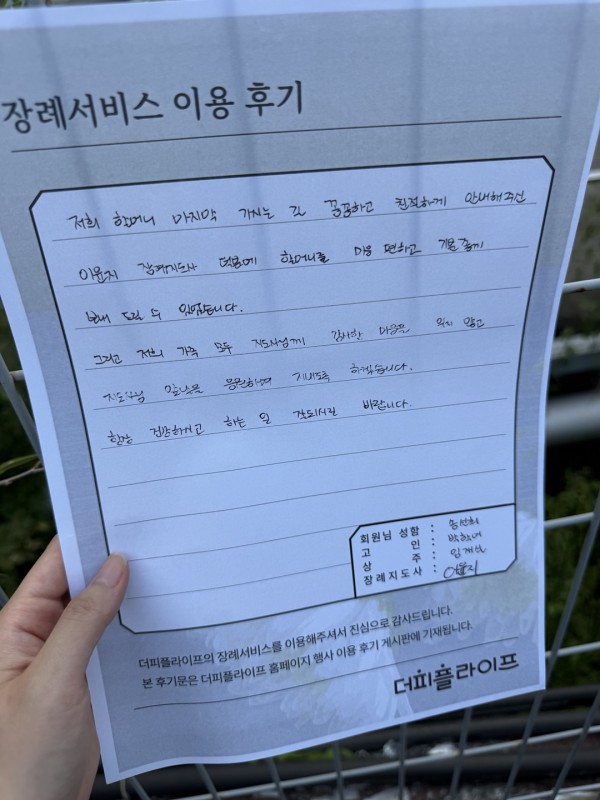 장례서비스 이용 후기
저희 할머니 마지막 가시는 길 꼼꼼하고 친절하게 안내해주신
이윤지 장례지도사 덕분에 할머니를 마음 편하고 기분 좋게
보내 드릴 수 있었습니다.
그리고 저희 가족 모두 지도사님께 감사한 마음을 잊지 않고
지도사님 앞날을 응원하며 지내도록 하겠습니다.
항상 건강하시고 하는 일 잘되시길 바랍니다.
회원님 성함 :
고 인 :
상 주 :
장례지도사 : 이윤지
더피플라이프의 장례서비스를 이용해주셔서 진심으로 감사드립니다.
본 후기문은 더피플라이프 홈페이지 행사 이용 후기 게시판에 기재됩니다.
더피플라이프